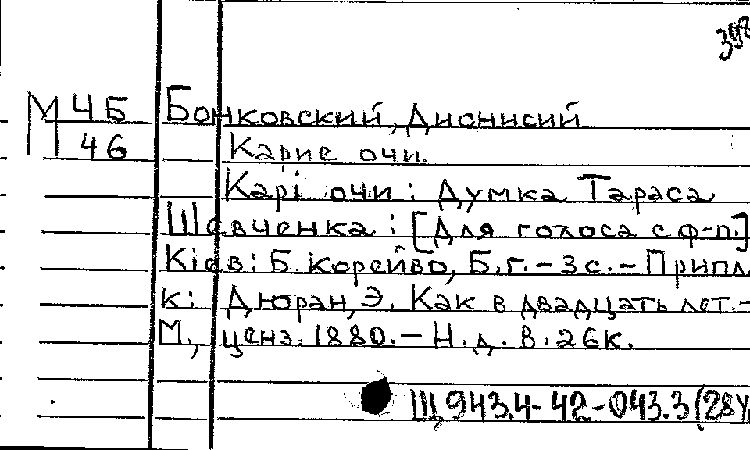 М 45 Бонковский, Дионисий
46 Карие очи.
Карі очи : Думка Тараса
Шевченка : [Для голоса с ф-п.]
Кіев : Б. Корейво, Б.г. - 3 с. - Припл.
к: Дюран, Э. Как в двадцать лет. -
М., ценз. 1880. - Н. д. 8. 26к.
Щ 943.4-42-043.3(28У